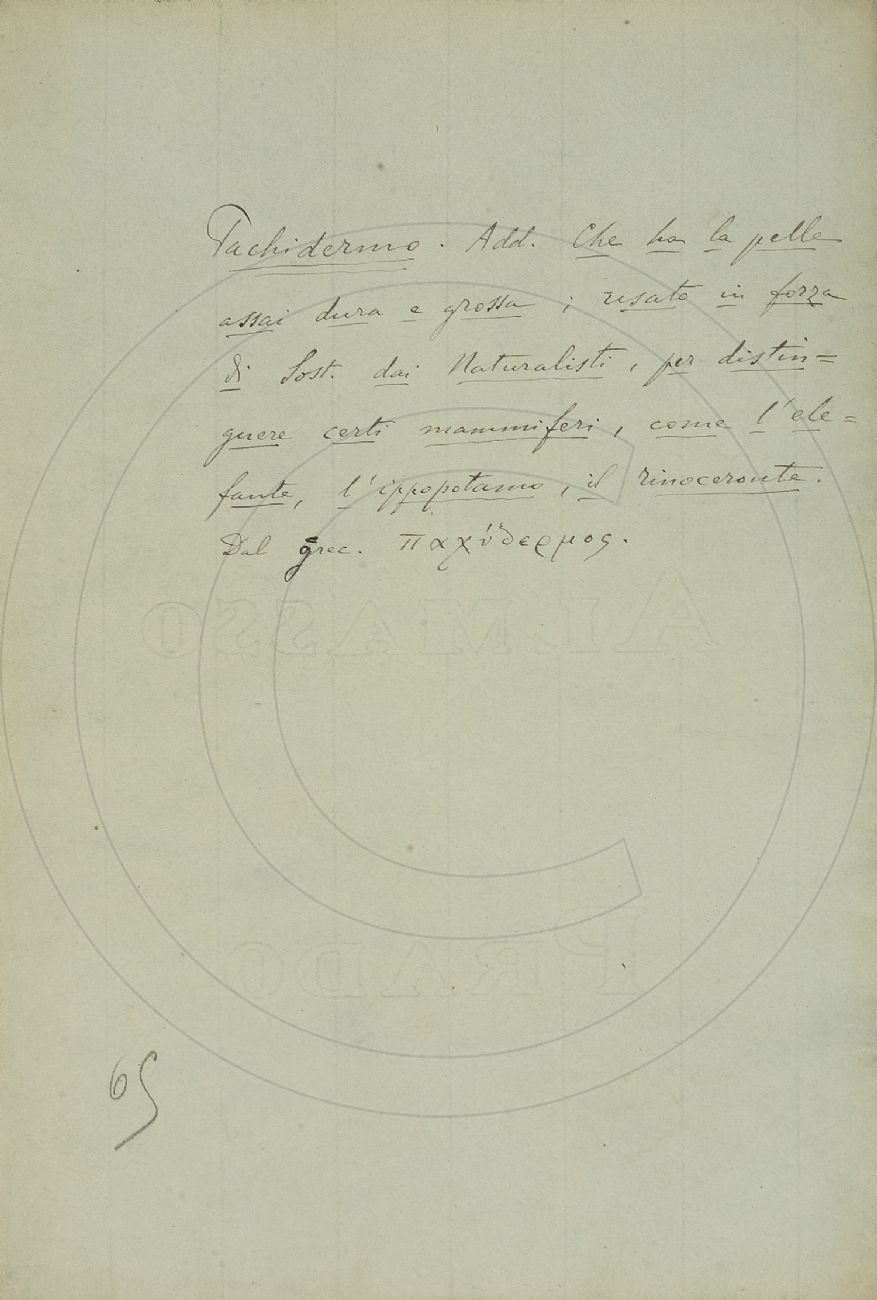 Pachidermo. Add. Che ha la pelle
assai dura e grossa; usato in forza
di Sost. dai Naturalisti, per distin=
guere certi mammiferi, come l'ele=
fante, l'ippopotamo, il rinoceronte.
Dal grec. παχύδερμος.
AL MASSO
PRADO
65